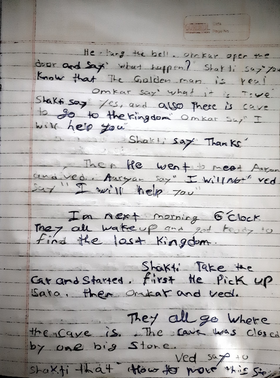 He rang the bell. omkar open the
door and say" what happen? Shakti say "you
know that The Golden man is real
Omkar say" what it is true
Shakti say Yes, and also there is cave
to go to the kingdom" Omkar say" I
will help you"
Shakti say Thanks
Then He went to meet Aaryan
and ved. Aaryan say" I will no" ved
say " I will help you"
In next morning 6'clock
They all wake up and get ready to
find the lost kingdom.
Shakti Take the
Car and Started. first He Pick up
then Omkar and ved.
They all go where
the cave is. The cave was closed
by one big stone.
Ved say to
shakti that "How to move this